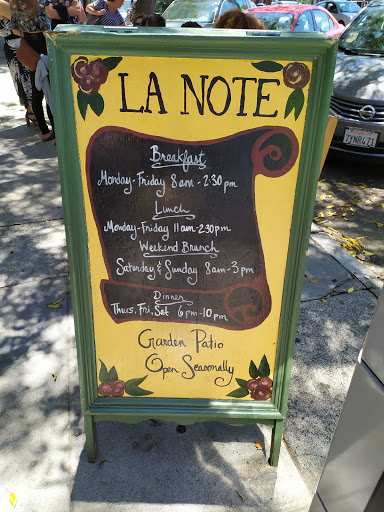 LA NOTE
Breakfast
Monday-Friday 8am-2:30pm
Lunch
Monday-Friday 11am-2:30pm
Weekend Brunch
Saturday & Sunday 8am-3pm
Dinner
Thurs, Fri, Sat 6pm-10pm
Garden Patio
Open Seasonally